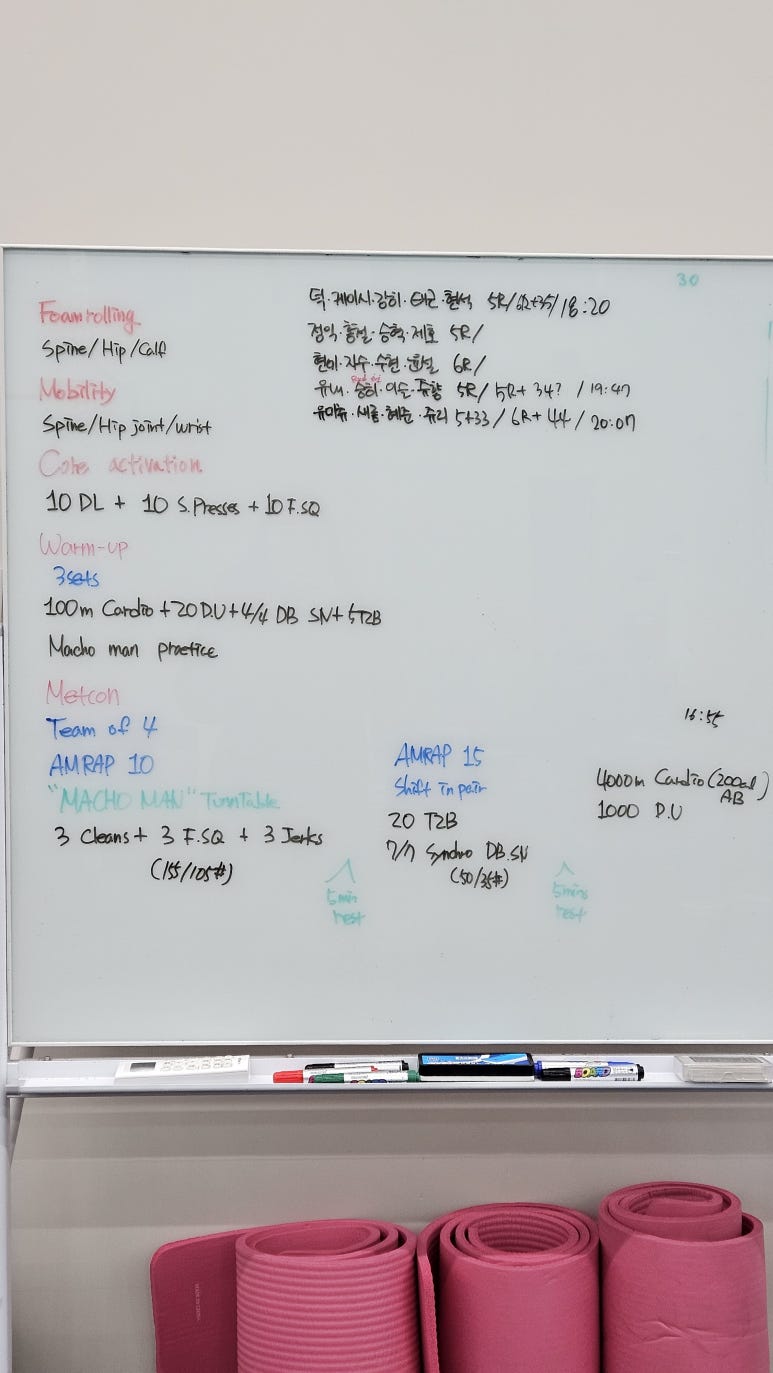 Foamrolling
Spine/Hip/Calf
Mobility
Spine/Hip joint/wrist
Core activation
10 DL + 10 S.Presses + 10 F.SQ
Warm-up
3sets
100m Cardio + 20 D.U + 4/4 DB SN + 5 T2B
Macho man practice
Metcon
Team of 4
AMRAP 10
"MACHO MAN" Turntable
3 Cleans + 3 F.SQ + 3 Jerks
(155/105#)
5min
rest
AMRAP 15
Shift in pair
20 T2B
7/7 Synchro DB.SN
(50/35#)
5mins
rest
16:55
4000m Cardio (200cal)
AB
1000 D.U
30
덕·케이시·강히·태근·현석 5R/6R+35/18:20
정익·홍철·승혁·제호 5R/
현이·지수·수현·한설 6R/
승히 5R/ 5R+34? / 19:47
유미쥬·새롬·혜준·쥬리 5+33 / 6R+44 / 20:07
BOARD